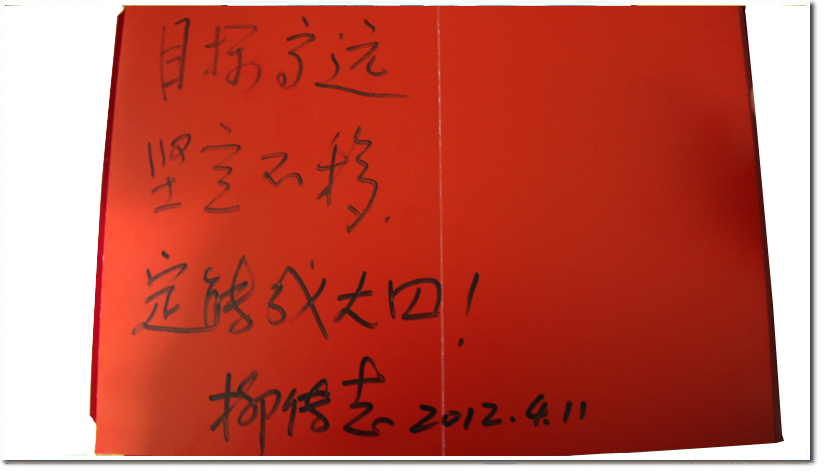 目标高远
坚定不移.
定能成大四!
柳传志 2012.4.11